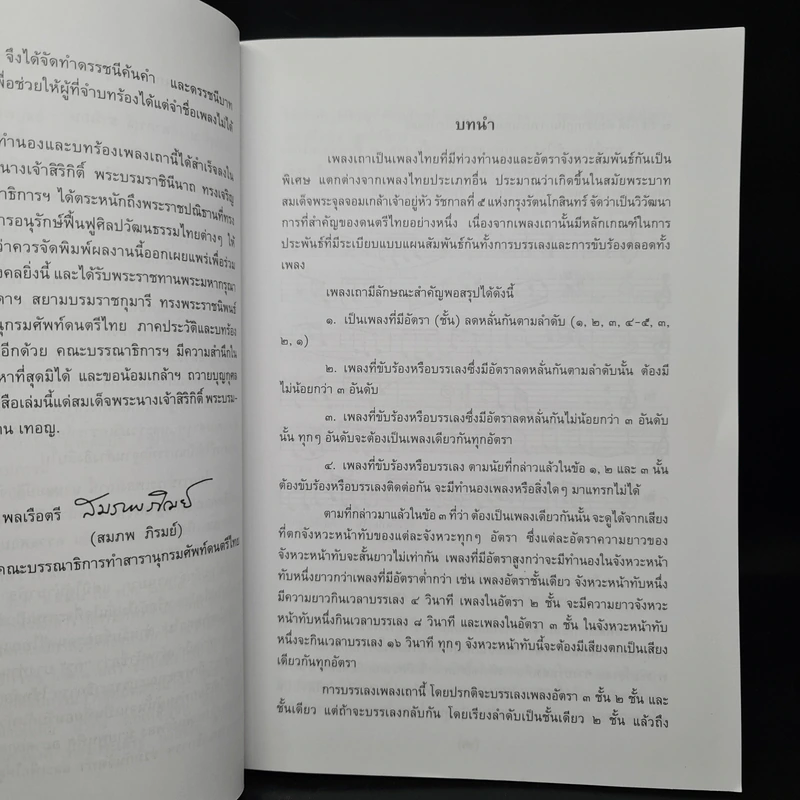 จึงได้จัดทำดรรชนีค้นคำ และดรรชนีบาท
เพื่อช่วยให้ผู้ที่จำบทร้องได้แต่จำชื่อเพลงไม่ได้
ทำนองและบทร้องเพลงเถานี้ได้สำเร็จลงใน
นางเจ้าสิริกิติ์ พระบรมราชินีนาถ ทรงเจริญ
าธิการฯ ได้ตระหนักถึงพระราชปณิธานที่ทรง
การอนุรักษ์ฟื้นฟูศิลปวัฒนธรรมไทยต่างๆ ให้
ว่าควรจัดพิมพ์ผลงานนี้ออกเผยแพร่เพื่อร่วม
งคลยิ่งนี้ และได้รับพระราชทานพระมหากรุณา
ดาฯ สยามบรมราชกุมารี ทรงพระราชนิพนธ์
นุกรมศัพท์ดนตรีไทย ภาคประวัติและบทร้อง
อีกด้วย คณะบรรณาธิการฯ มีความสำนึกใน
หาที่สุดมิได้ และขอน้อมเกล้าฯ ถวายบุญกุศล
สือเล่มนี้แด่สมเด็จพระนางเจ้าสิริกิติ์ พระบรม-
าน เทอญ.
พลเรือตรี สมภพ ภิรมย์
(สมภพ ภิรมย์)
คณะบรรณาธิการทำสารานุกรมศัพท์ดนตรีไทย
บทนำ
เพลงเถาเป็นเพลงไทยที่มีท่วงทำนองและอัตราจังหวะสัมพันธ์กันเป็น
พิเศษ แตกต่างจากเพลงไทยประเภทอื่น ประมาณว่าเกิดขึ้นในสมัยพระบาท
สมเด็จพระจุลจอมเกล้าเจ้าอยู่หัว รัชกาลที่ ๕ แห่งกรุงรัตนโกสินทร์ จัดว่าเป็นวิวัฒนา
การที่สำคัญของดนตรีไทยอย่างหนึ่ง เนื่องจากเพลงเถานั้นมีหลักเกณฑ์ในการ
ประพันธ์ที่มีระเบียบแบบแผนสัมพันธ์กันทั้งการบรรเลงและการขับร้องตลอดทั้ง
เพลง
เพลงเถามีลักษณะสำคัญพอสรุปได้ดังนี้
๑. เป็นเพลงที่มีอัตรา (ชั้น) ลดหลั่นกันตามลำดับ (๑, ๒, ๓, ๔-๕, ๓,
๒, ๑)
๒. เพลงที่ขับร้องหรือบรรเลงซึ่งมีอัตราลดหลั่นกันตามลำดับนั้น ต้องมี
ไม่น้อยกว่า ๓ อันดับ
๓. เพลงที่ขับร้องหรือบรรเลงซึ่งมีอัตราลดหลั่นกันไม่น้อยกว่า ๓ อันดับ
นั้น ทุกๆ อันดับจะต้องเป็นเพลงเดียวกันทุกอัตรา
๔. เพลงที่ขับร้องหรือบรรเลง ตามนัยที่กล่าวแล้วในข้อ ๑, ๒ และ ๓ นั้น
ต้องขับร้องหรือบรรเลงติดต่อกัน จะมีทำนองเพลงหรือสิ่งใดๆ มาแทรกไม่ได้
ตามที่กล่าวมาแล้วในข้อ ๓ ที่ว่า ต้องเป็นเพลงเดียวกันนั้น จะดูได้จากเสียง
ที่ตกจังหวะหน้าทับของแต่ละจังหวะทุกๆ อัตรา ซึ่งแต่ละอัตราความยาวของ
จังหวะหน้าทับจะสั้นยาวไม่เท่ากัน เพลงที่มีอัตราสูงกว่าจะมีทำนองในจังหวะหน้า
ทับหนึ่งยาวกว่าเพลงที่มีอัตราต่ำกว่า เช่น เพลงอัตราชั้นเดียว จังหวะหน้าทับหนึ่ง
มีความยาวกินเวลาบรรเลง ๔ วินาที เพลงในอัตรา ๒ ชั้น จะมีความยาวจังหวะ
หน้าทับหนึ่งกินเวลาบรรเลง ๘ วินาที และเพลงในอัตรา ๓ ชั้น ในจังหวะหน้าทับ
หนึ่งจะกินเวลาบรรเลง ๑๖ วินาที ทุกๆ จังหวะหน้าทับนี้จะต้องมีเสียงตกเป็นเสียง
เดียวกันทุกอัตรา
การบรรเลงเพลงเถานี้ โดยปรกติจะบรรเลงเพลงอัตรา ๓ ชั้น ๒ ชั้น และ
ชั้นเดียว แต่ถ้าจะบรรเลงกลับกัน โดยเรียงลำดับเป็นชั้นเดียว ๒ ชั้น แล้วถึง